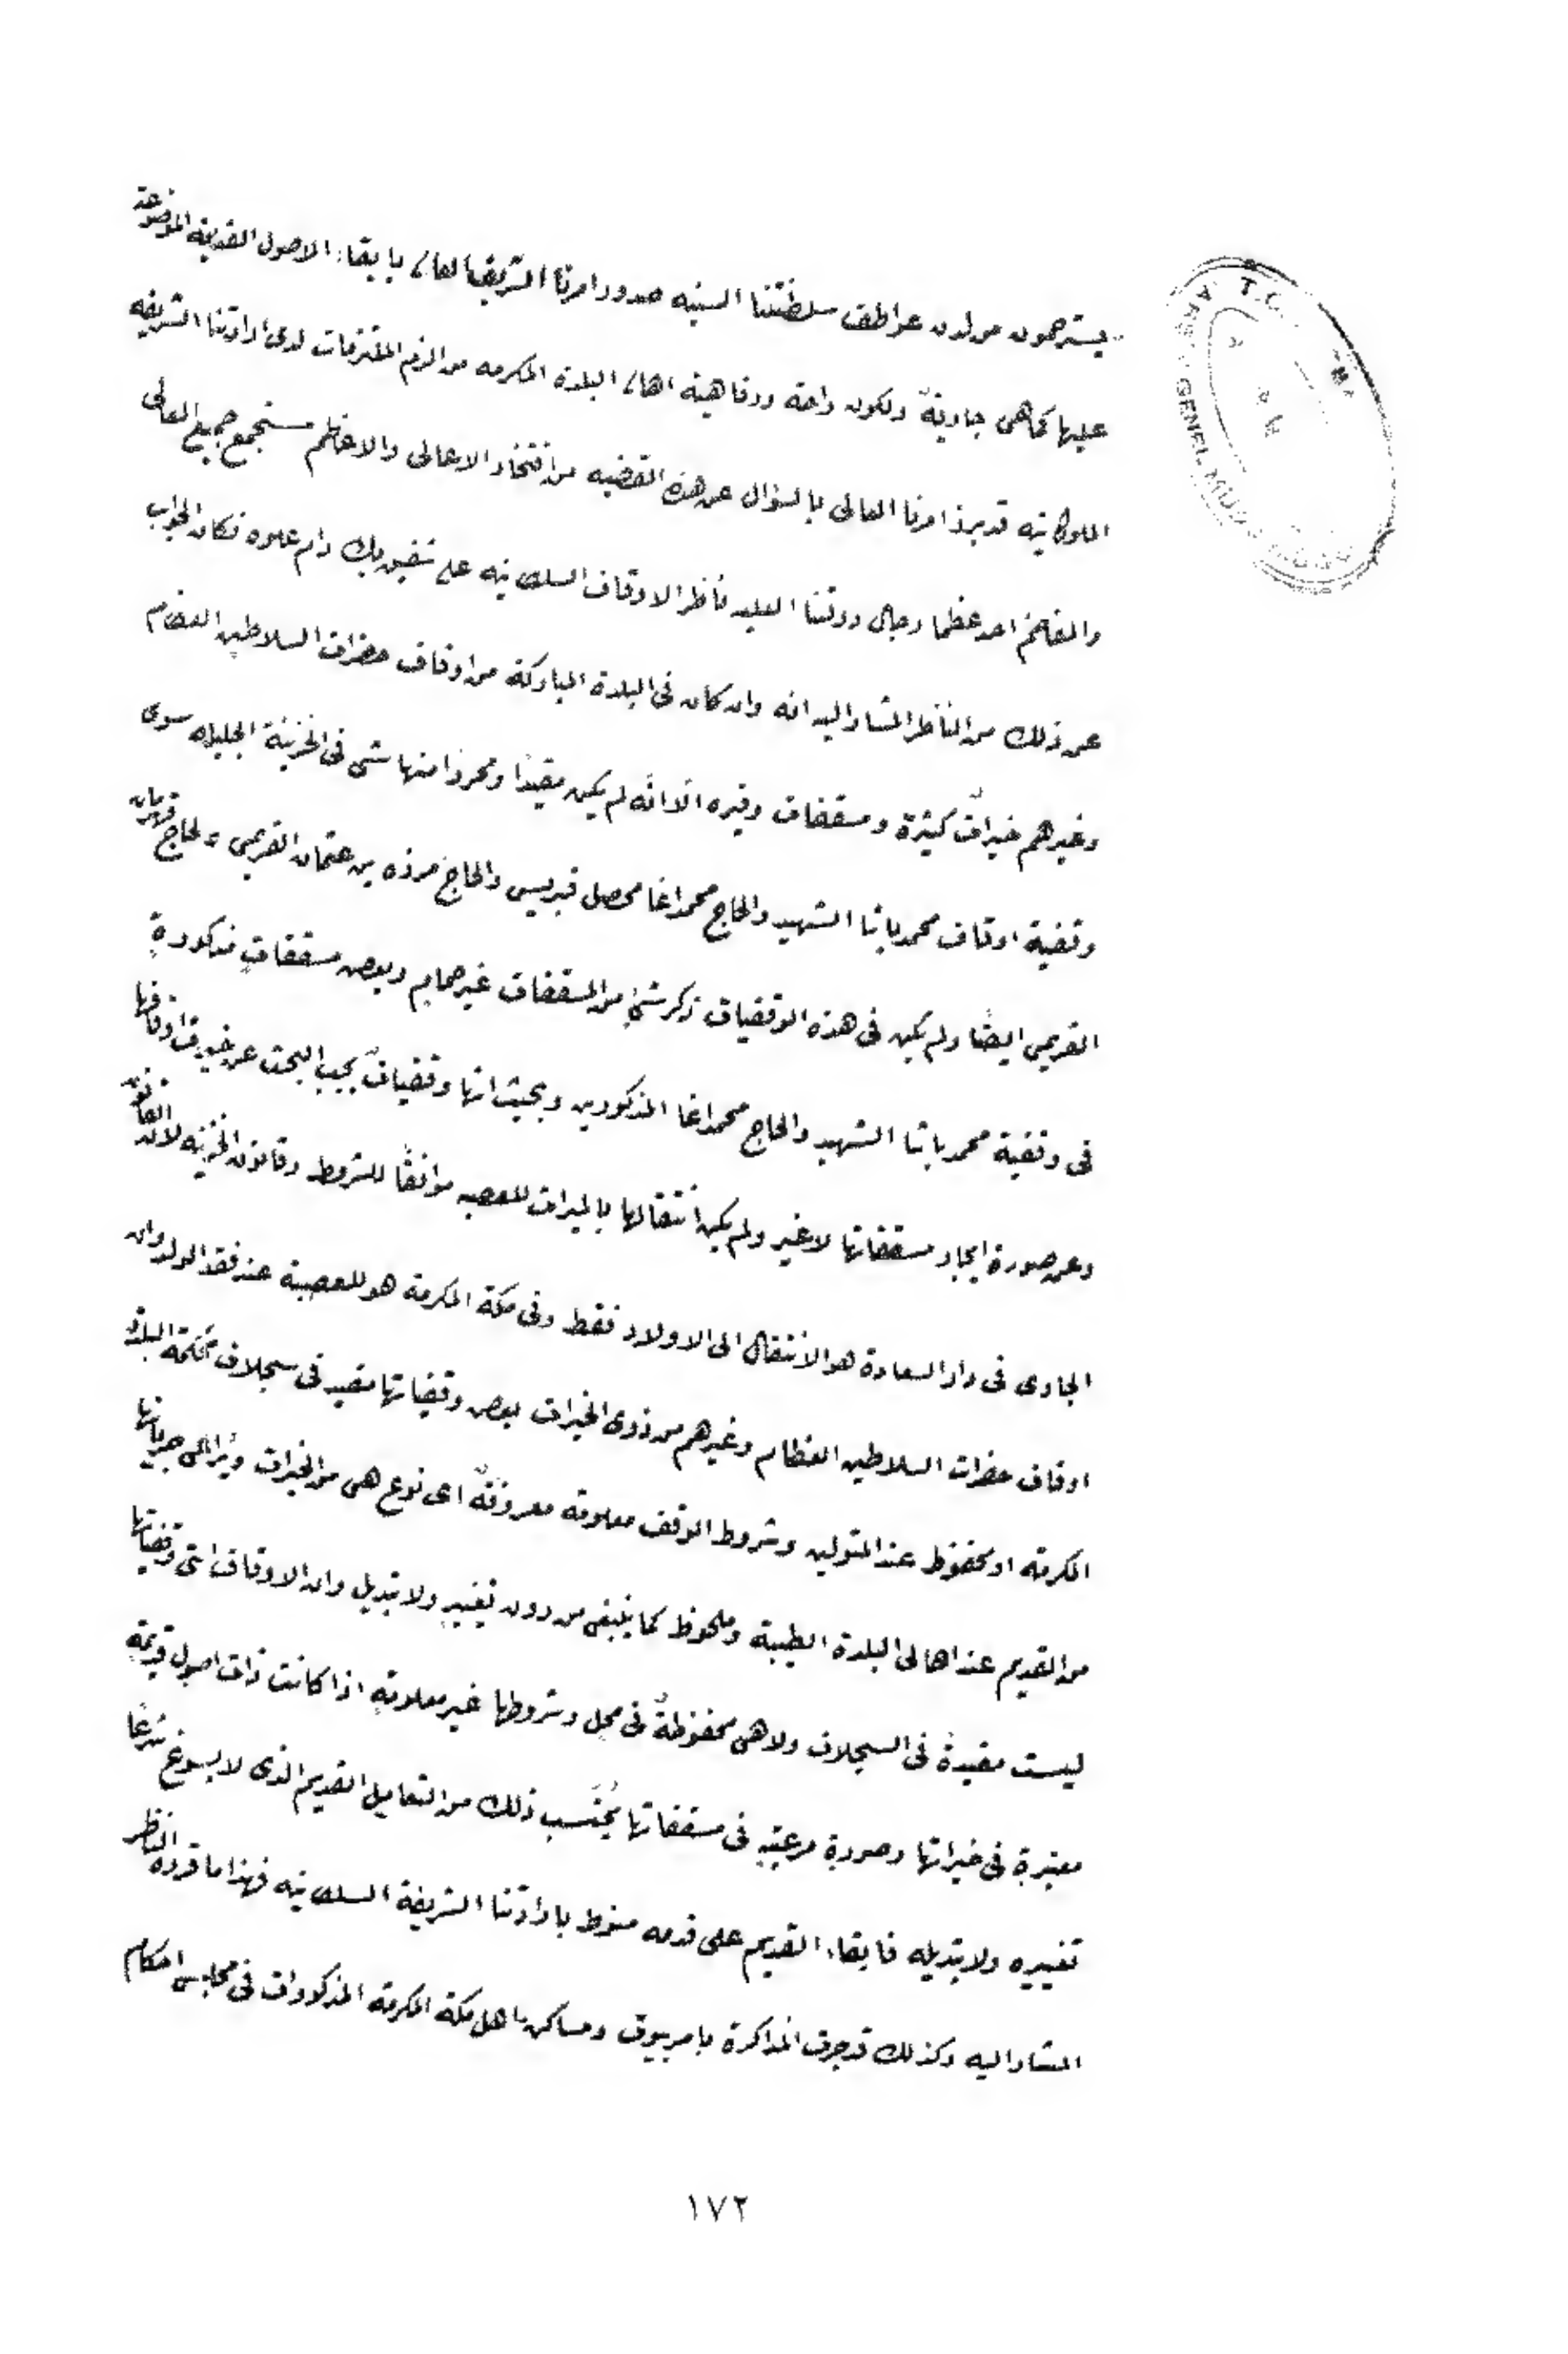 يسترحمون من لدن عواطف سلطنتنا السنيه صدور امرنا الشريف العالى بابقاء الاصول القديمة الموضوعة
عليها كما هى جارية ولكون راحة ورفاهية اهالى البلدة المكرمه من الزم الملتزمات لدى ارادتنا الشريفه
الملوكانيه قد برز امرنا العالى بالسؤال عن هذه القضيه من افتخار الاعالى والاعاظم مستجمع جميع المعالى
والمفاخم احد عظما رجال دولتنا العليه ناظر الاوقاف السلطانيه على شفيق بك دام علوه فكان الجواب
عن ذلك من الناظر المشار اليه انه وان كان فى البلدة المباركة من اوقاف حضرات السلاطين العظام
وغيرهم خيرات كثيرة ومسقفات وفيره الا انه لم يكن مقيدا ومحررا منها شى فى الخزينة الجليله سوى
وقفية اوقاف محمد باشا الشهيد والحاج محمد اغا محصل قبريس والحاج مرزه بن عثمان القريمى والحاج قهرمان
القريمى ايضا ولم يكن فى هذه الوقفيات ذكر شئ من المسقفات غير حمام وبعض مسقفات مذكورة
فى وقفية محمد باشا الشهيد والحاج محمد اغا المذكورين وبحيث انها وقفيات يجب البحث عن خيرات اوقافها
وعن صورة ايجار مسقفاتها لا غير ولم يكن انتقالها بالميراث للعصبه موافقا للشروط وقانون الخزينه لان القانون
الجارى فى دار السعادة هو الانتقال الى الاولاد فقط وفى مكة المكرمة هو للعصبة عند فقد الولد وان
اوقاف حضرات السلاطين العظام وغيرهم من ذوى الخيرات بعض وقفياتها مقيد فى سجلات محكمة البلدة
المكرمة او محفوظ عند المتولين وشروط الوقف معلومة معروفة اى نوع هى من الخيرات ويراعى جريانها
من القديم عند اهالى البلدة الطيبة وملحوظ كما ينبغى من دون تغيير ولا تبديل وان الاوقاف التى وقفياتها
ليست مقيدة فى السجلات ولا هى محفوظة فى محل وشروطها غير معلومة اذا كانت ذات اصول قديمة
معتبرة فى خيراتها وصورة مرعية فى مسقفاتها يحتسب ذلك من التعامل القديم الذى لا يسوغ شرعا
تغييره ولا تبديله فابقاء القديم على قدمه منوط بارادتنا الشريفة السلطانيه فهذا ما قرره الناظر
المشار اليه وكذلك قد جرت المذاكرة بامر بيوت ومساكن اهل مكة المكرمة المذكورات فى مجلس احكام
١٧٢
T.C.
GENEL MÜD